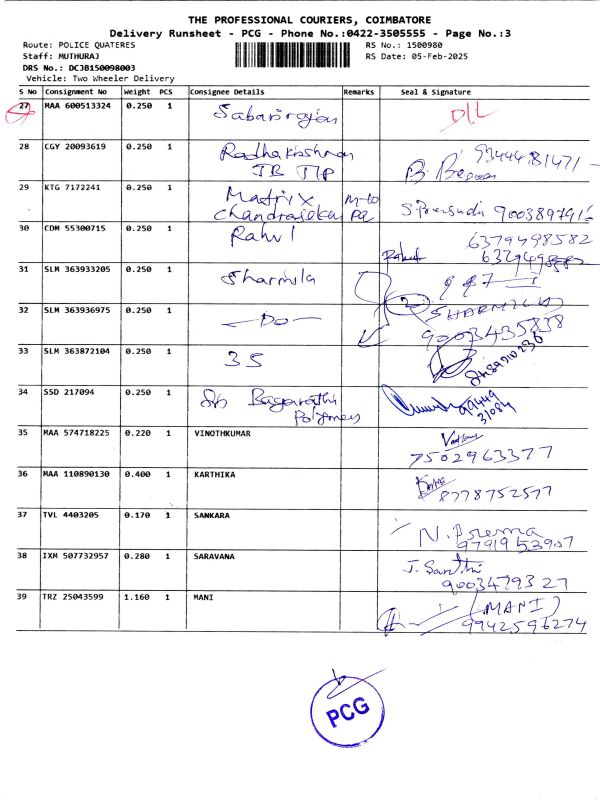 THE PROFESSIONAL COURIERS, COIMBATORE
Delivery Runsheet - PCG - Phone No.:0422-3505555 - Page No.:3
Route: POLICE QUATERES RS No.: 1500980
Staff: MUTHURAJ RS Date: 05-Feb-2025
DRS No.: DCJB150098003
Vehicle: Two Wheeler Delivery
S No Consignment No Weight PCS Consignee Details Remarks Seal & Signature
27 MAA 600513324 0.250 1 D/L
28 CGY 20093619 0.250 1 Radhakrishnan
29 KTG 7172241 0.250 1 Matrix
30 CDM 55300715 0.250 1 Rahul 6379498582
31 SLM 363933205 0.250 1 Sharmila
32 SLM 363936975 0.250 1 —Do— SHARMILA
9003435838
33 SLM 363872104 0.250 1 3S
34 SSD 217094 0.250 1
Polymers
35 MAA 574718225 0.220 1 VINOTHKUMAR
7502963377
36 MAA 110890130 0.400 1 KARTHIKA 8778752577
37 TVL 4403205 0.170 1 SANKARA N. Prema
9791953907
38 IXM 507732957 0.280 1 SARAVANA J. Santhi
9003479327
39 TRZ 25043599 1.160 1 MANI (MANI)
9942596274
PCG